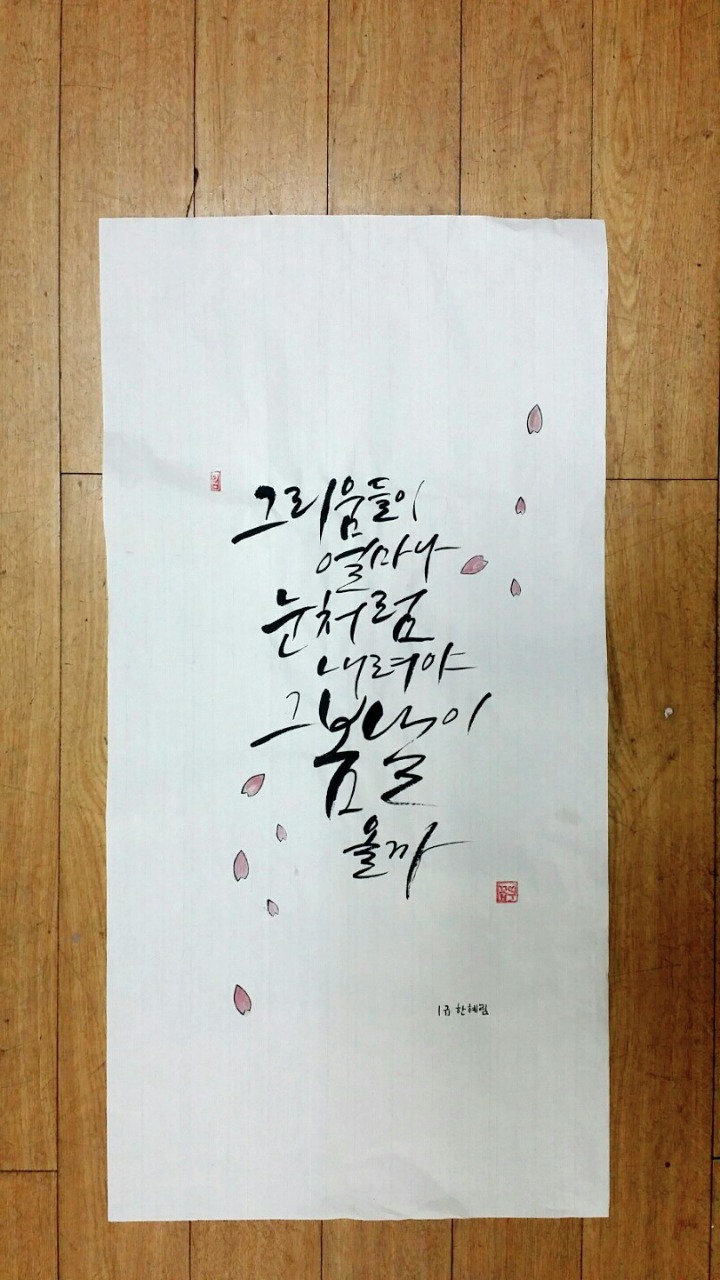 그리움들이
얼마나
눈처럼
내려야
그 봄날이
올까
한혜림